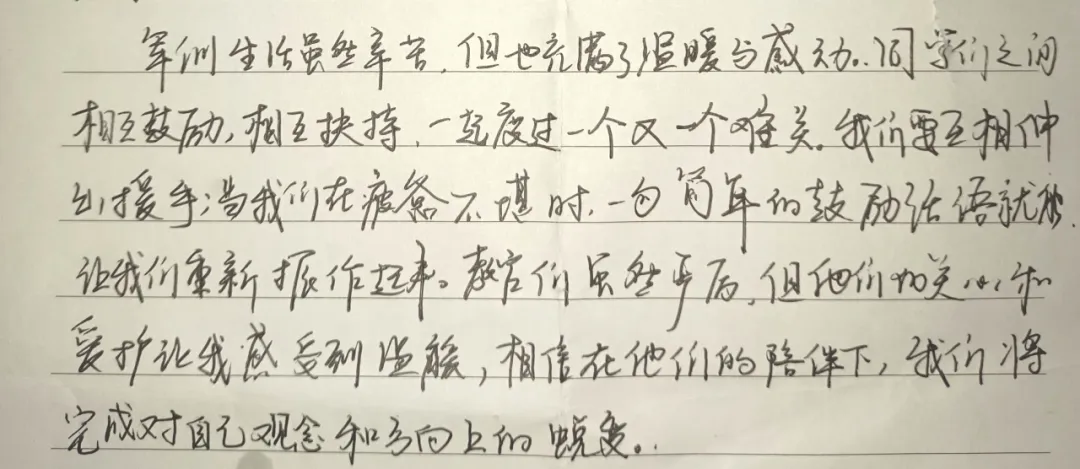 军训生活虽然辛苦,但也充满了温暖与感动。同学们之间
相互鼓励,相互扶持,一起度过一个又一个难关。我们要互相伸
出援手;当我们在疲惫不堪时,一句简单的鼓励话语就能
让我们重新振作起来。教官们虽然严厉,但他们的关心和
爱护让我感受到温暖,相信在他们的陪伴下,我们将
完成对自己观念和方向上的蜕变。